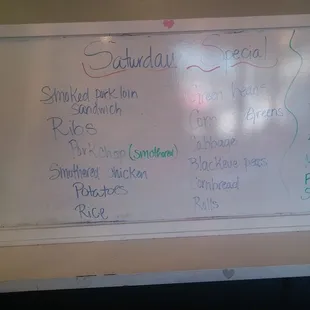 Saturday Special
Smoked pork loin
Sandwich
Ribs
Pork chop (smothered)
Smuthered chicken
Potatoes
Rice
Green beans
Corn Greens
Cabbage
Blackeye peas
Cornbread
Rolls